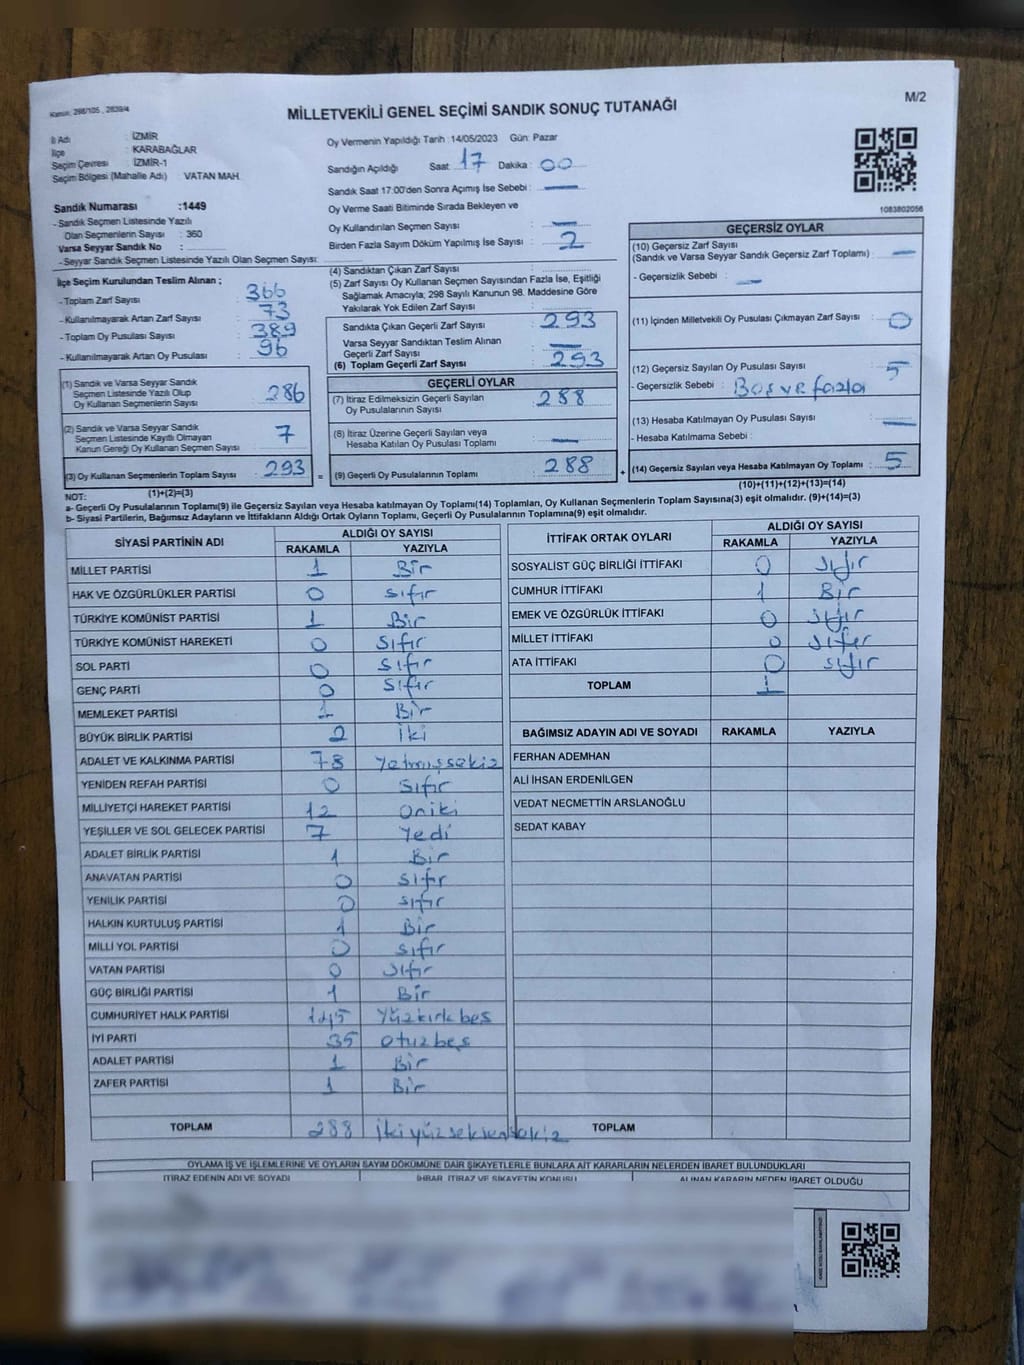 Kanun: 298/105 , 2839/4
MİLLETVEKİLİ GENEL SEÇİMİ SANDIK SONUÇ TUTANAĞI
M/2
İl Adı : İZMİR
İlçe : KARABAĞLAR
Seçim Çevresi : İZMİR-1
Seçim Bölgesi (Mahalle Adı) : VATAN MAH.
Oy Vermenin Yapıldığı Tarih : 14/05/2023 Gün: Pazar
Sandığın Açıldığı Saat : 17 Dakika : 00
Sandık Saat 17:00'den Sonra Açımış İse Sebebi : —
Oy Verme Saati Bitiminde Sırada Bekleyen ve
Oy Kullandırılan Seçmen Sayısı : —
Birden Fazla Sayım Döküm Yapılmış İse Sayısı : 2
1083802056
Sandık Numarası :1449
- Sandık Seçmen Listesinde Yazılı
Olan Seçmenlerin Sayısı : 360
Varsa Seyyar Sandık No :
- Seyyar Sandık Seçmen Listesinde Yazılı Olan Seçmen Sayısı:
İlçe Seçim Kurulundan Teslim Alınan ;
- Toplam Zarf Sayısı : 366
- Kullanılmayarak Artan Zarf Sayısı : 73
- Toplam Oy Pusulası Sayısı : 389
- Kullanılmayarak Artan Oy Pusulası : 96
(1) Sandık ve Varsa Seyyar Sandık
Seçmen Listesinde Yazılı Olup
Oy Kullanan Seçmenlerin Sayısı : 286
(2) Sandık ve Varsa Seyyar Sandık
Seçmen Listesinde Kayıtlı Olmayan
Kanun Gereği Oy Kullanan Seçmen Sayısı : 7
(3) Oy Kullanan Seçmenlerin Toplam Sayısı : 293 =
(1)+(2)=(3)
(4) Sandıktan Çıkan Zarf Sayısı :
(5) Zarf Sayısı Oy Kullanan Seçmen Sayısından Fazla İse, Eşitliği
Sağlamak Amacıyla; 298 Sayılı Kanunun 98. Maddesine Göre
Yakılarak Yok Edilen Zarf Sayısı :
Sandıkta Çıkan Geçerli Zarf Sayısı : 293
Varsa Seyyar Sandıktan Teslim Alınan
Geçerli Zarf Sayısı : —
(6) Toplam Geçerli Zarf Sayısı : 293
GEÇERLİ OYLAR
(7) İtiraz Edilmeksizin Geçerli Sayılan
Oy Pusulalarının Sayısı : 288
(8) İtiraz Üzerine Geçerli Sayılan veya
Hesaba Katılan Oy Pusulası Toplamı : —
(9) Geçerli Oy Pusulalarının Toplamı : 288 +
GEÇERSİZ OYLAR
(10) Geçersiz Zarf Sayısı
(Sandık ve Varsa Seyyar Sandık Geçersiz Zarf Toplamı) : —
- Geçersizlik Sebebi : —
(11) İçinden Milletvekili Oy Pusulası Çıkmayan Zarf Sayısı : 0
(12) Geçersiz Sayılan Oy Pusulası Sayısı : 5
- Geçersizlik Sebebi : Boş ve fazla
(13) Hesaba Katılmayan Oy Pusulası Sayısı : —
- Hesaba Katılmama Sebebi :
(14) Geçersiz Sayılan veya Hesaba Katılmayan Oy Toplamı : 5
(10)+(11)+(12)+(13)=(14)
NOT:
a- Geçerli Oy Pusulalarının Toplamı(9) ile Geçersiz Sayılan veya Hesaba katılmayan Oy Toplamı(14) Toplamları, Oy Kullanan Seçmenlerin Toplam Sayısına(3) eşit olmalıdır. (9)+(14)=(3)
b- Siyasi Partilerin, Bağımsız Adayların ve İttifakların Aldığı Ortak Oyların Toplamı, Geçerli Oy Pusulalarının Toplamına(9) eşit olmalıdır.
SİYASİ PARTİNİN ADI ALDIĞI OY SAYISI
RAKAMLA YAZIYLA
MİLLET PARTİSİ 1 Bir
HAK VE ÖZGÜRLÜKLER PARTİSİ 0 Sıfır
TÜRKİYE KOMÜNİST PARTİSİ 1 Bir
TÜRKİYE KOMÜNİST HAREKETİ 0 Sıfır
SOL PARTİ 0 Sıfır
GENÇ PARTİ 0 Sıfır
MEMLEKET PARTİSİ 1 Bir
BÜYÜK BİRLİK PARTİSİ 2 İki
ADALET VE KALKINMA PARTİSİ 78 Yetmişsekiz
YENİDEN REFAH PARTİSİ 0 Sıfır
MİLLİYETÇİ HAREKET PARTİSİ 12 Oniki
YEŞİLLER VE SOL GELECEK PARTİSİ 7 Yedi
ADALET BİRLİK PARTİSİ 1 Bir
ANAVATAN PARTİSİ 0 Sıfır
YENİLİK PARTİSİ 0 Sıfır
HALKIN KURTULUŞ PARTİSİ 1 Bir
MİLLİ YOL PARTİSİ 0 Sıfır
VATAN PARTİSİ 0 Sıfır
GÜÇ BİRLİĞİ PARTİSİ 1 Bir
CUMHURİYET HALK PARTİSİ 145 Yüzkırkbeş
İYİ PARTİ 35 Otuzbeş
ADALET PARTİSİ 1 Bir
ZAFER PARTİSİ 1 Bir
TOPLAM 288 İkiyüzseksensekiz
İTTİFAK ORTAK OYLARI ALDIĞI OY SAYISI
RAKAMLA YAZIYLA
SOSYALİST GÜÇ BİRLİĞİ İTTİFAKI 0 Sıfır
CUMHUR İTTİFAKI 1 Bir
EMEK VE ÖZGÜRLÜK İTTİFAKI 0 Sıfır
MİLLET İTTİFAKI 0 Sıfır
ATA İTTİFAKI 0 Sıfır
TOPLAM 1
BAĞIMSIZ ADAYIN ADI VE SOYADI RAKAMLA YAZIYLA
FERHAN ADEMHAN
ALİ İHSAN ERDENİLGEN
VEDAT NECMETTİN ARSLANOĞLU
SEDAT KABAY
TOPLAM
OYLAMA İŞ VE İŞLEMLERİNE VE OYLARIN SAYIM DÖKÜMÜNE DAİR ŞİKAYETLERLE BUNLARA AİT KARARLARIN NELERDEN İBARET BULUNDUKLARI
İTİRAZ EDENİN ADI VE SOYADI İHBAR, İTİRAZ VE ŞİKAYETİN KONUSU ALINAN KARARIN NEDEN İBARET OLDUĞU